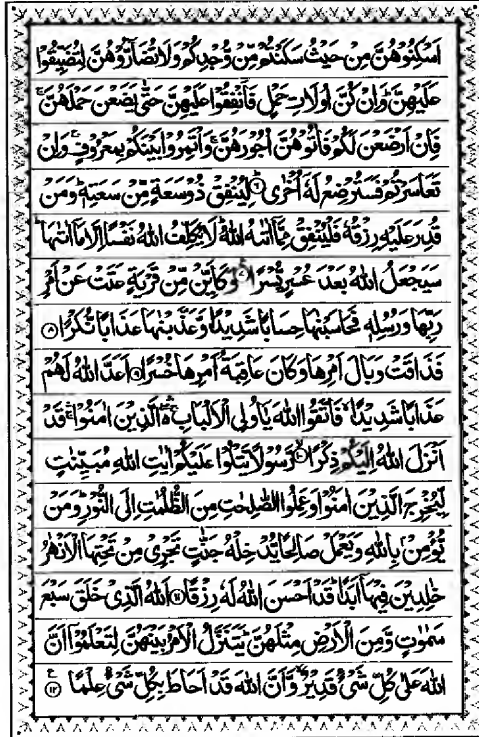 اَسْكِنُوْهُنَّ مِنْ حَيْثُ سَكَنْتُمْ مِّنْ وُّجْدِكُمْ وَلَا تُضَآرُّوْهُنَّ لِتُضَيِّقُوْا
عَلَيْهِنَّ ؕ وَاِنْ كُنَّ اُولَاتِ حَمْلٍ فَاَنْفِقُوْا عَلَيْهِنَّ حَتّٰى يَضَعْنَ حَمْلَهُنَّ ۚ
فَاِنْ اَرْضَعْنَ لَكُمْ فَاٰتُوْهُنَّ اُجُوْرَهُنَّ ۚ وَاْتَمِرُوْا بَيْنَكُمْ بِمَعْرُوْفٍ ۚ وَاِنْ
تَعَاسَرْتُمْ فَسَتُرْضِعُ لَهٗۤ اُخْرٰى ؕ۶ لِيُنْفِقْ ذُوْ سَعَةٍ مِّنْ سَعَتِهٖ ؕ وَمَنْ
قُدِرَ عَلَيْهِ رِزْقُهٗ فَلْيُنْفِقْ مِمَّاۤ اٰتٰىهُ اللّٰهُ ؕ لَا يُكَلِّفُ اللّٰهُ نَفْسًا اِلَّا مَاۤ اٰتٰىهَا ؕ
سَيَجْعَلُ اللّٰهُ بَعْدَ عُسْرٍ يُّسْرًا ۷ وَكَاَيِّنْ مِّنْ قَرْيَةٍ عَتَتْ عَنْ اَمْرِ
رَبِّهَا وَرُسُلِهٖ فَحَاسَبْنٰهَا حِسَابًا شَدِيْدًا وَّعَذَّبْنٰهَا عَذَابًا نُّكْرًا ۸
فَذَاقَتْ وَبَالَ اَمْرِهَا وَكَانَ عَاقِبَةُ اَمْرِهَا خُسْرًا ۹ اَعَدَّ اللّٰهُ لَهُمْ
عَذَابًا شَدِيْدًا ۙ فَاتَّقُوا اللّٰهَ يٰۤاُولِى الْاَلْبَابِ ۛۖۚ الَّذِيْنَ اٰمَنُوْا ۛؕ قَدْ
اَنْزَلَ اللّٰهُ اِلَيْكُمْ ذِكْرًا ۙ۱۰ رَّسُوْلًا يَّتْلُوْا عَلَيْكُمْ اٰيٰتِ اللّٰهِ مُبَيِّنٰتٍ
لِّيُخْرِجَ الَّذِيْنَ اٰمَنُوْا وَعَمِلُوا الصّٰلِحٰتِ مِنَ الظُّلُمٰتِ اِلَى النُّوْرِ ؕ وَمَنْ
يُّؤْمِنْۢ بِاللّٰهِ وَيَعْمَلْ صَالِحًا يُّدْخِلْهُ جَنّٰتٍ تَجْرِىْ مِنْ تَحْتِهَا الْاَنْهٰرُ
خٰلِدِيْنَ فِيْهَاۤ اَبَدًا ؕ قَدْ اَحْسَنَ اللّٰهُ لَهٗ رِزْقًا ۱۱ اَللّٰهُ الَّذِىْ خَلَقَ سَبْعَ
سَمٰوٰتٍ وَّمِنَ الْاَرْضِ مِثْلَهُنَّ ؕ يَتَنَزَّلُ الْاَمْرُ بَيْنَهُنَّ لِتَعْلَمُوْۤا اَنَّ
اللّٰهَ عَلٰى كُلِّ شَىْءٍ قَدِيْرٌ ۙ وَّاَنَّ اللّٰهَ قَدْ اَحَاطَ بِكُلِّ شَىْءٍ عِلْمًا ۱۲ ع